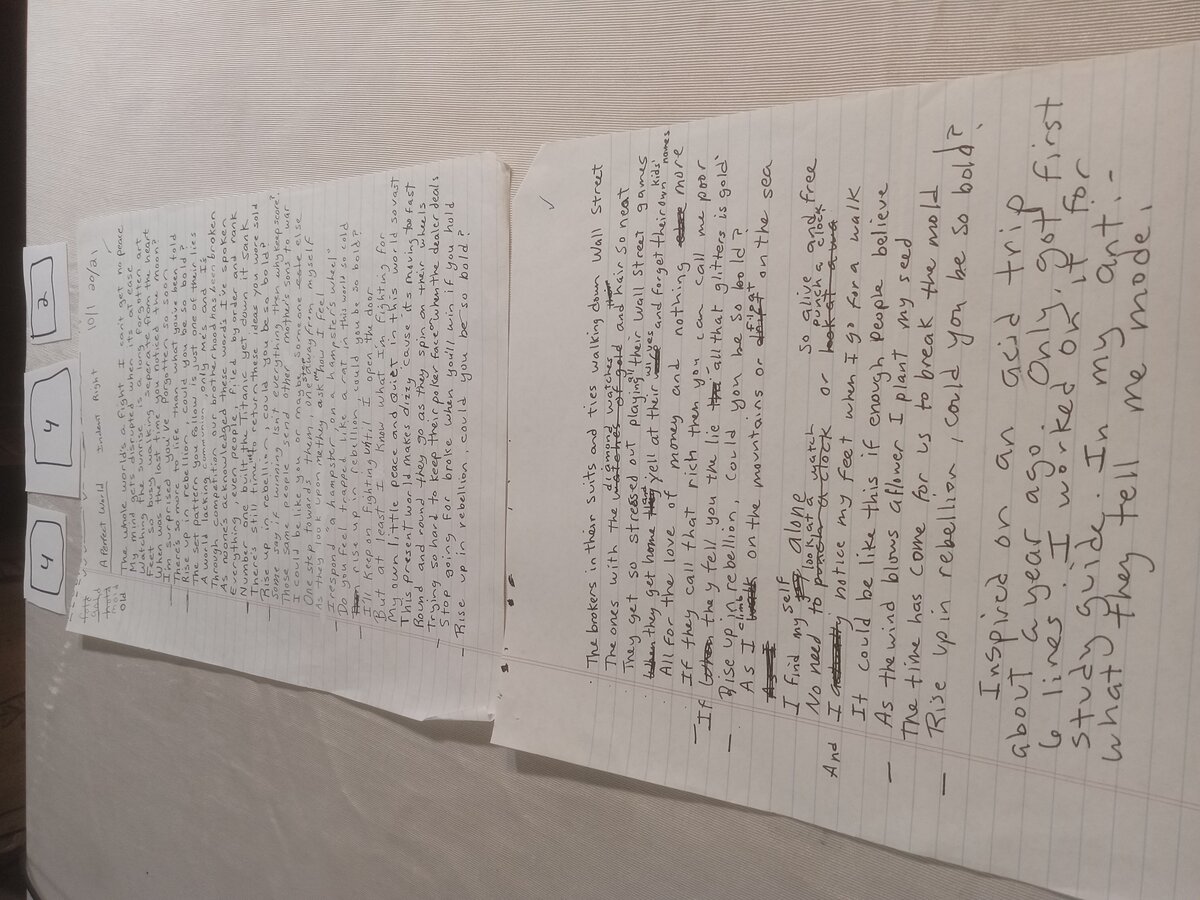 4
4
2
fold
Gold
mold
old
A Perfect World Indent Right 10/1 20/21
The whole world's a fight I can't get no peace
My mind gets disrupted when it's at ease
Watching the sunrise is a long forgotten art
Feet so busy walking seperate from the heart
When was the last time you noticed the moon?
I'm surprised you've forgotten so soon
There's so more to life than what you've been told
Rise up in rebellion could you be so bold?
The set pattern you follow is just one of their lies
A world lacking communion, only Me's and I's
Through competition our brotherhood has been broken
As no ones acknowledged these words I've spoken
Everything even people, filed by order and rank
Number one built the Titanic yet down it sank
There's still time to return these ideas you were sold
Rise up in rebellion, could you be so bold?
Some say if winning isn't everything then why keep score?
Those same people send other mother's sons to war
I could be like you or maybe someone else
One step toward them one step away from myself
As they look upon me they ask "How I feel"
I respond "a hamster on a hamster's wheel"
Do you feel trapped like a rat in this world so cold
rise up in rebellion, could you be so bold?
I'll keep on fighting until I open the door
But at least I know what I'm fighting for
My own little peace and Quiet in this world so vast
This present world makes dizzy cause it's moving to fast
Round and round they go as they spin on their wheels
Trying so hard to keep their poker face when the dealer deals
Stop going for broke when you'll win if you hold
Rise up in rebellion, could you be so bold?
The brokers in their suits and ties walking down Wall Street
The ones with the diamond watches and hair so neat
They get so stressed out playing their Wall Street games
they get home and yell at their wives and forget their own kids' names
All for the love of money and nothing more
If they call that rich then you can call me poor
If they tell you the lie "all that glitters is gold"
Rise up in rebellion, could you be so bold?
As I climb on the mountains or float on the sea
I find myself alone so alive and free
No need to look at a watch or punch a clock
And I notice my feet when I go for a walk
It could be like this if enough people believe
As the wind blows a flower I plant my seed
The time has come for us to break the mold
Rise up in rebellion, could you be so bold?
Inspired on an acid trip
about a year ago. Only got first
6 lines. I worked on it for
study guide. In my ant.-
what they tell me mode.